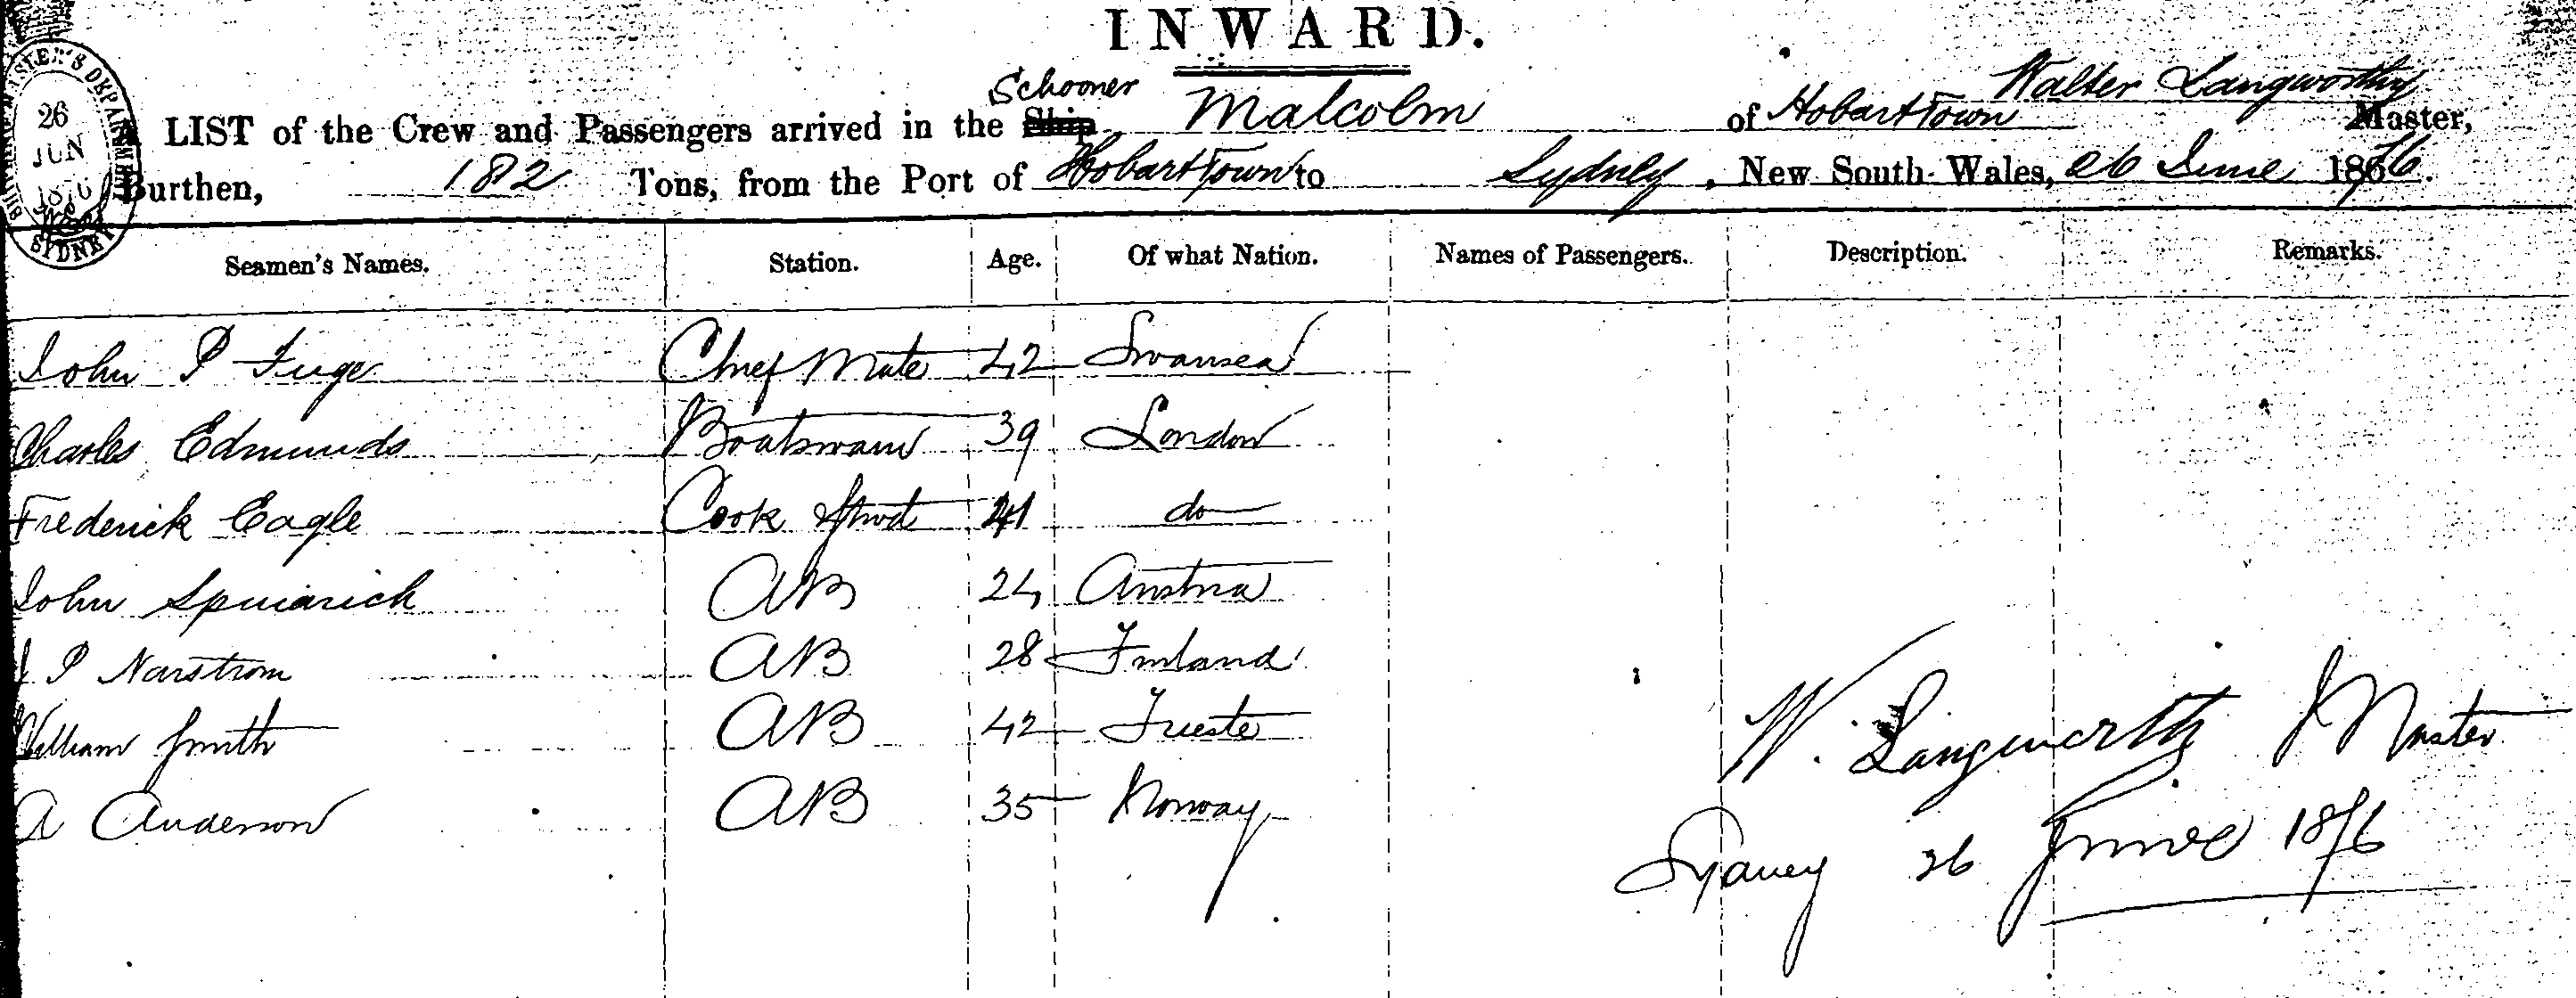 INWARD.
SHIPPING MASTER'S DEPARTMENT
26
JUN
1876
SYDNEY
Schooner Walter Langworthy
A LIST of the Crew and Passengers arrived in the Ship Malcolm of Hobart Town Master,
Burthen, 182 Tons, from the Port of Hobart Town to Sydney, New South Wales, 26 June 1876.
Seamen's Names. Station. Age. Of what Nation. Names of Passengers. Description. Remarks.
John P Fuge Chief Mate 42 Swansea
Charles Edmunds Boatswain 39 London
Frederick Eagle Cook & Stwd 41 do
John AB 24 Austria
J P Narstrom AB 28 Finland
William Smith AB 42 Trieste
A Anderson AB 35 Norway
W. Langworthy Master
Sydney 26 June 1876